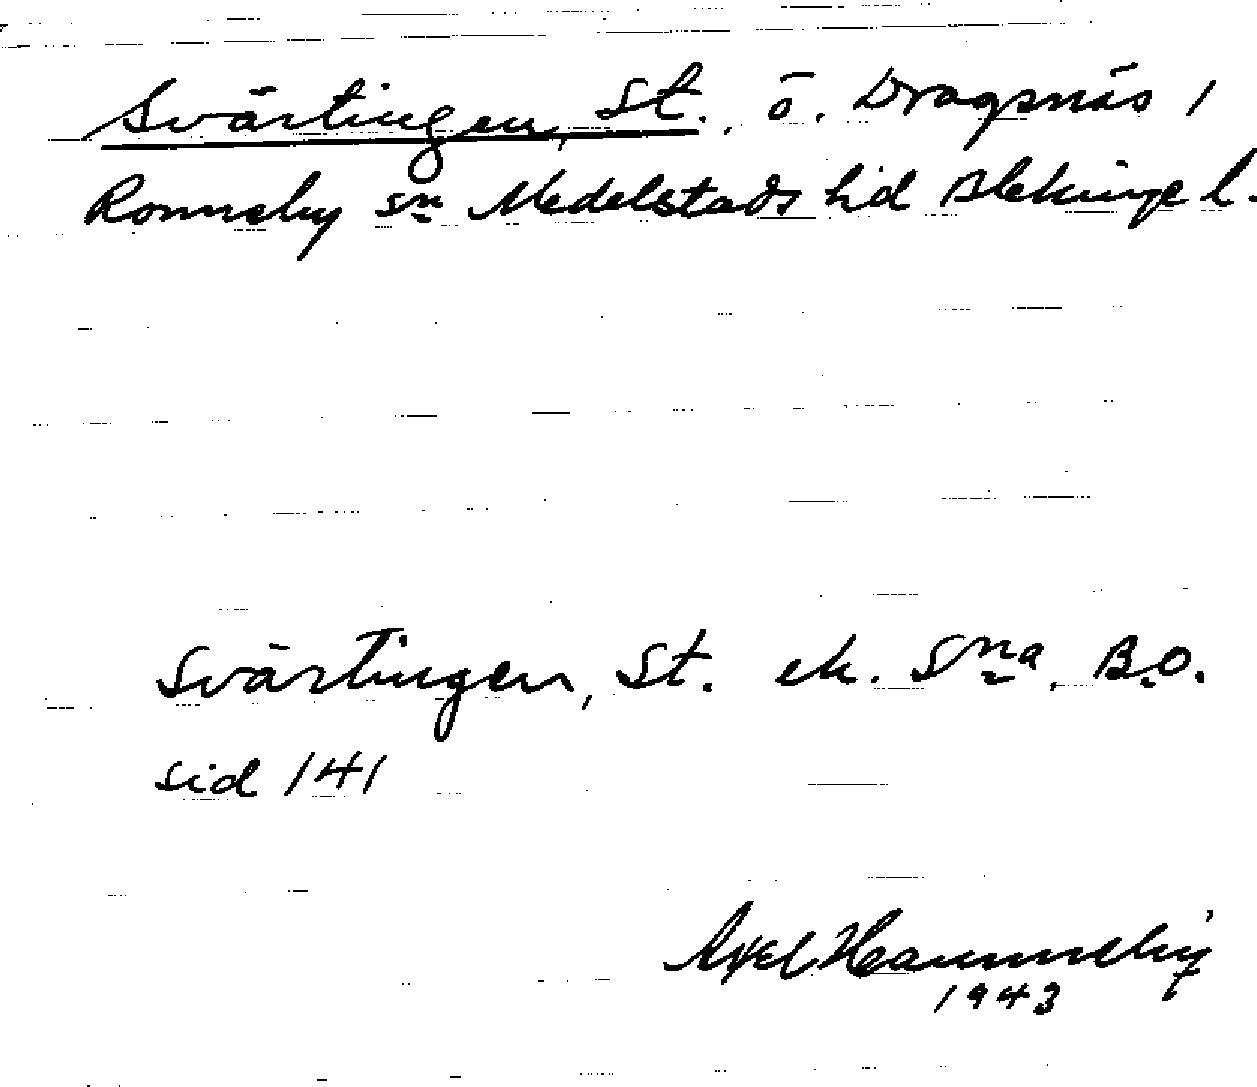 Svärtingen, St., ö. Dragsnäs /
Ronneby sn Medelstads hd Blekinge l.
Svärtingen, St. ek. Sna, B.O.
sid 141
Axel
1943